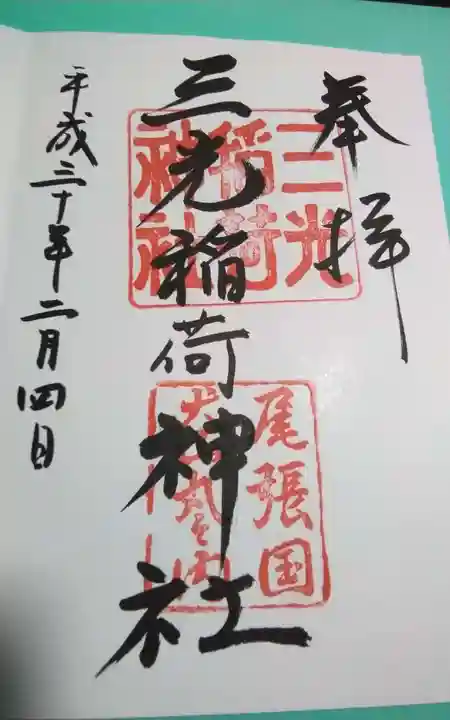 奉拝
三光稲荷神社
平成三十年二月四日
三光
稲荷
神社
尾張国